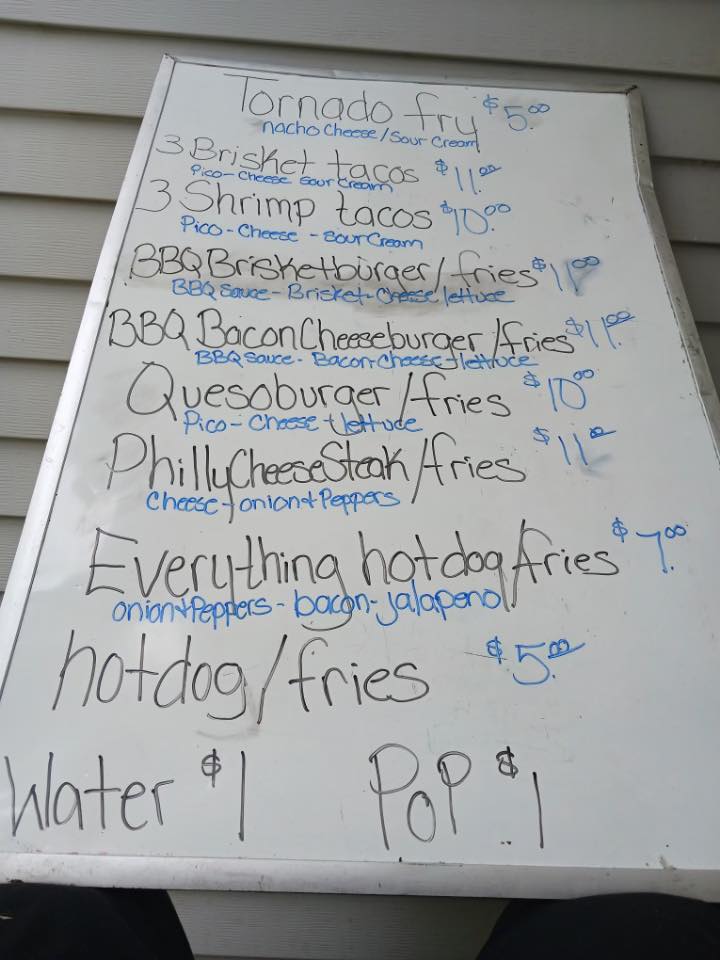 Tornado fry $5.00
nacho Cheese/Sour Cream
3 Brisket tacos $11.00
Pico-Cheese Sour Cream
3 Shrimp tacos $10.00
Pico-Cheese-Sour Cream
BBQ Brisketburger/fries $11.00
BBQ Sauce-Brisket-Cheese lettuce
BBQ Bacon Cheeseburger/fries $11.00
BBQ sauce-Bacon-Cheese+lettuce
Quesoburger/fries $10.00
Pico-Cheese+lettuce
Philly Cheese Steak/fries $11.00
Cheese-onion+Peppers
Everything hotdog/fries $7.00
onion+Peppers-bacon-jalapeno
hotdog/fries $5.00
Water $1 PoP $1